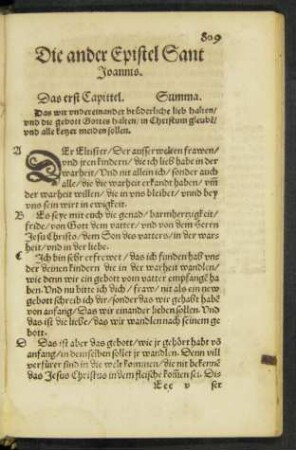 809
Die ander Epistel Sant
Joannis.
Das erst Capittel. Summa.
Das wir vndereinander brůderliche lieb halten/
vnd die gebott Gottes halten/ in Christum gleubē/
vnd alle ketzer meiden sollen.
A DEr Eltister/ Der ausserwelten frawen/
vnd jren kindern/ die ich lieb habe in der
warheit/ Vnd nit allein ich/ sonder auch
alle/ die die warheit erkandt haben/ vm̄
der warheit willen/ die in vns bleibet/ vnnd bey
vns sein wirt in ewigkeit.
B Es seye mit euch die genad/ barmhertzigkeit/
fride/ von Gott dem vatter/ vnd von dem Herrn
Jesu Christo/ dem Son des vatters/ in der war-
heit/ vnd in der liebe.
C Ich bin sehr erfrewet/ das ich funden hab vns
der deinen kindern die in der warheit wandlen/
wie denn wir ein gebott vom vatter empfangē ha
ben. Vnd nu bitte ich dich/ fraw/ nit als ein new
gebott schreib ich dir/ sonder das wir gehabt habē
von anfang/ Das wir einander lieben sollen. Vnd
das ist die liebe/ das wir wandlen nach seinem ge
bott.
D Das ist aber das gebott/ wie jr gehört habt vō
anfang/ in dem selben sollet jr wandlen. Denn vill
verfürer sind in die welt kommen/ die nit bekennē
das Jesus Christus in dem fleische kom̄en sei. Dis
v ser